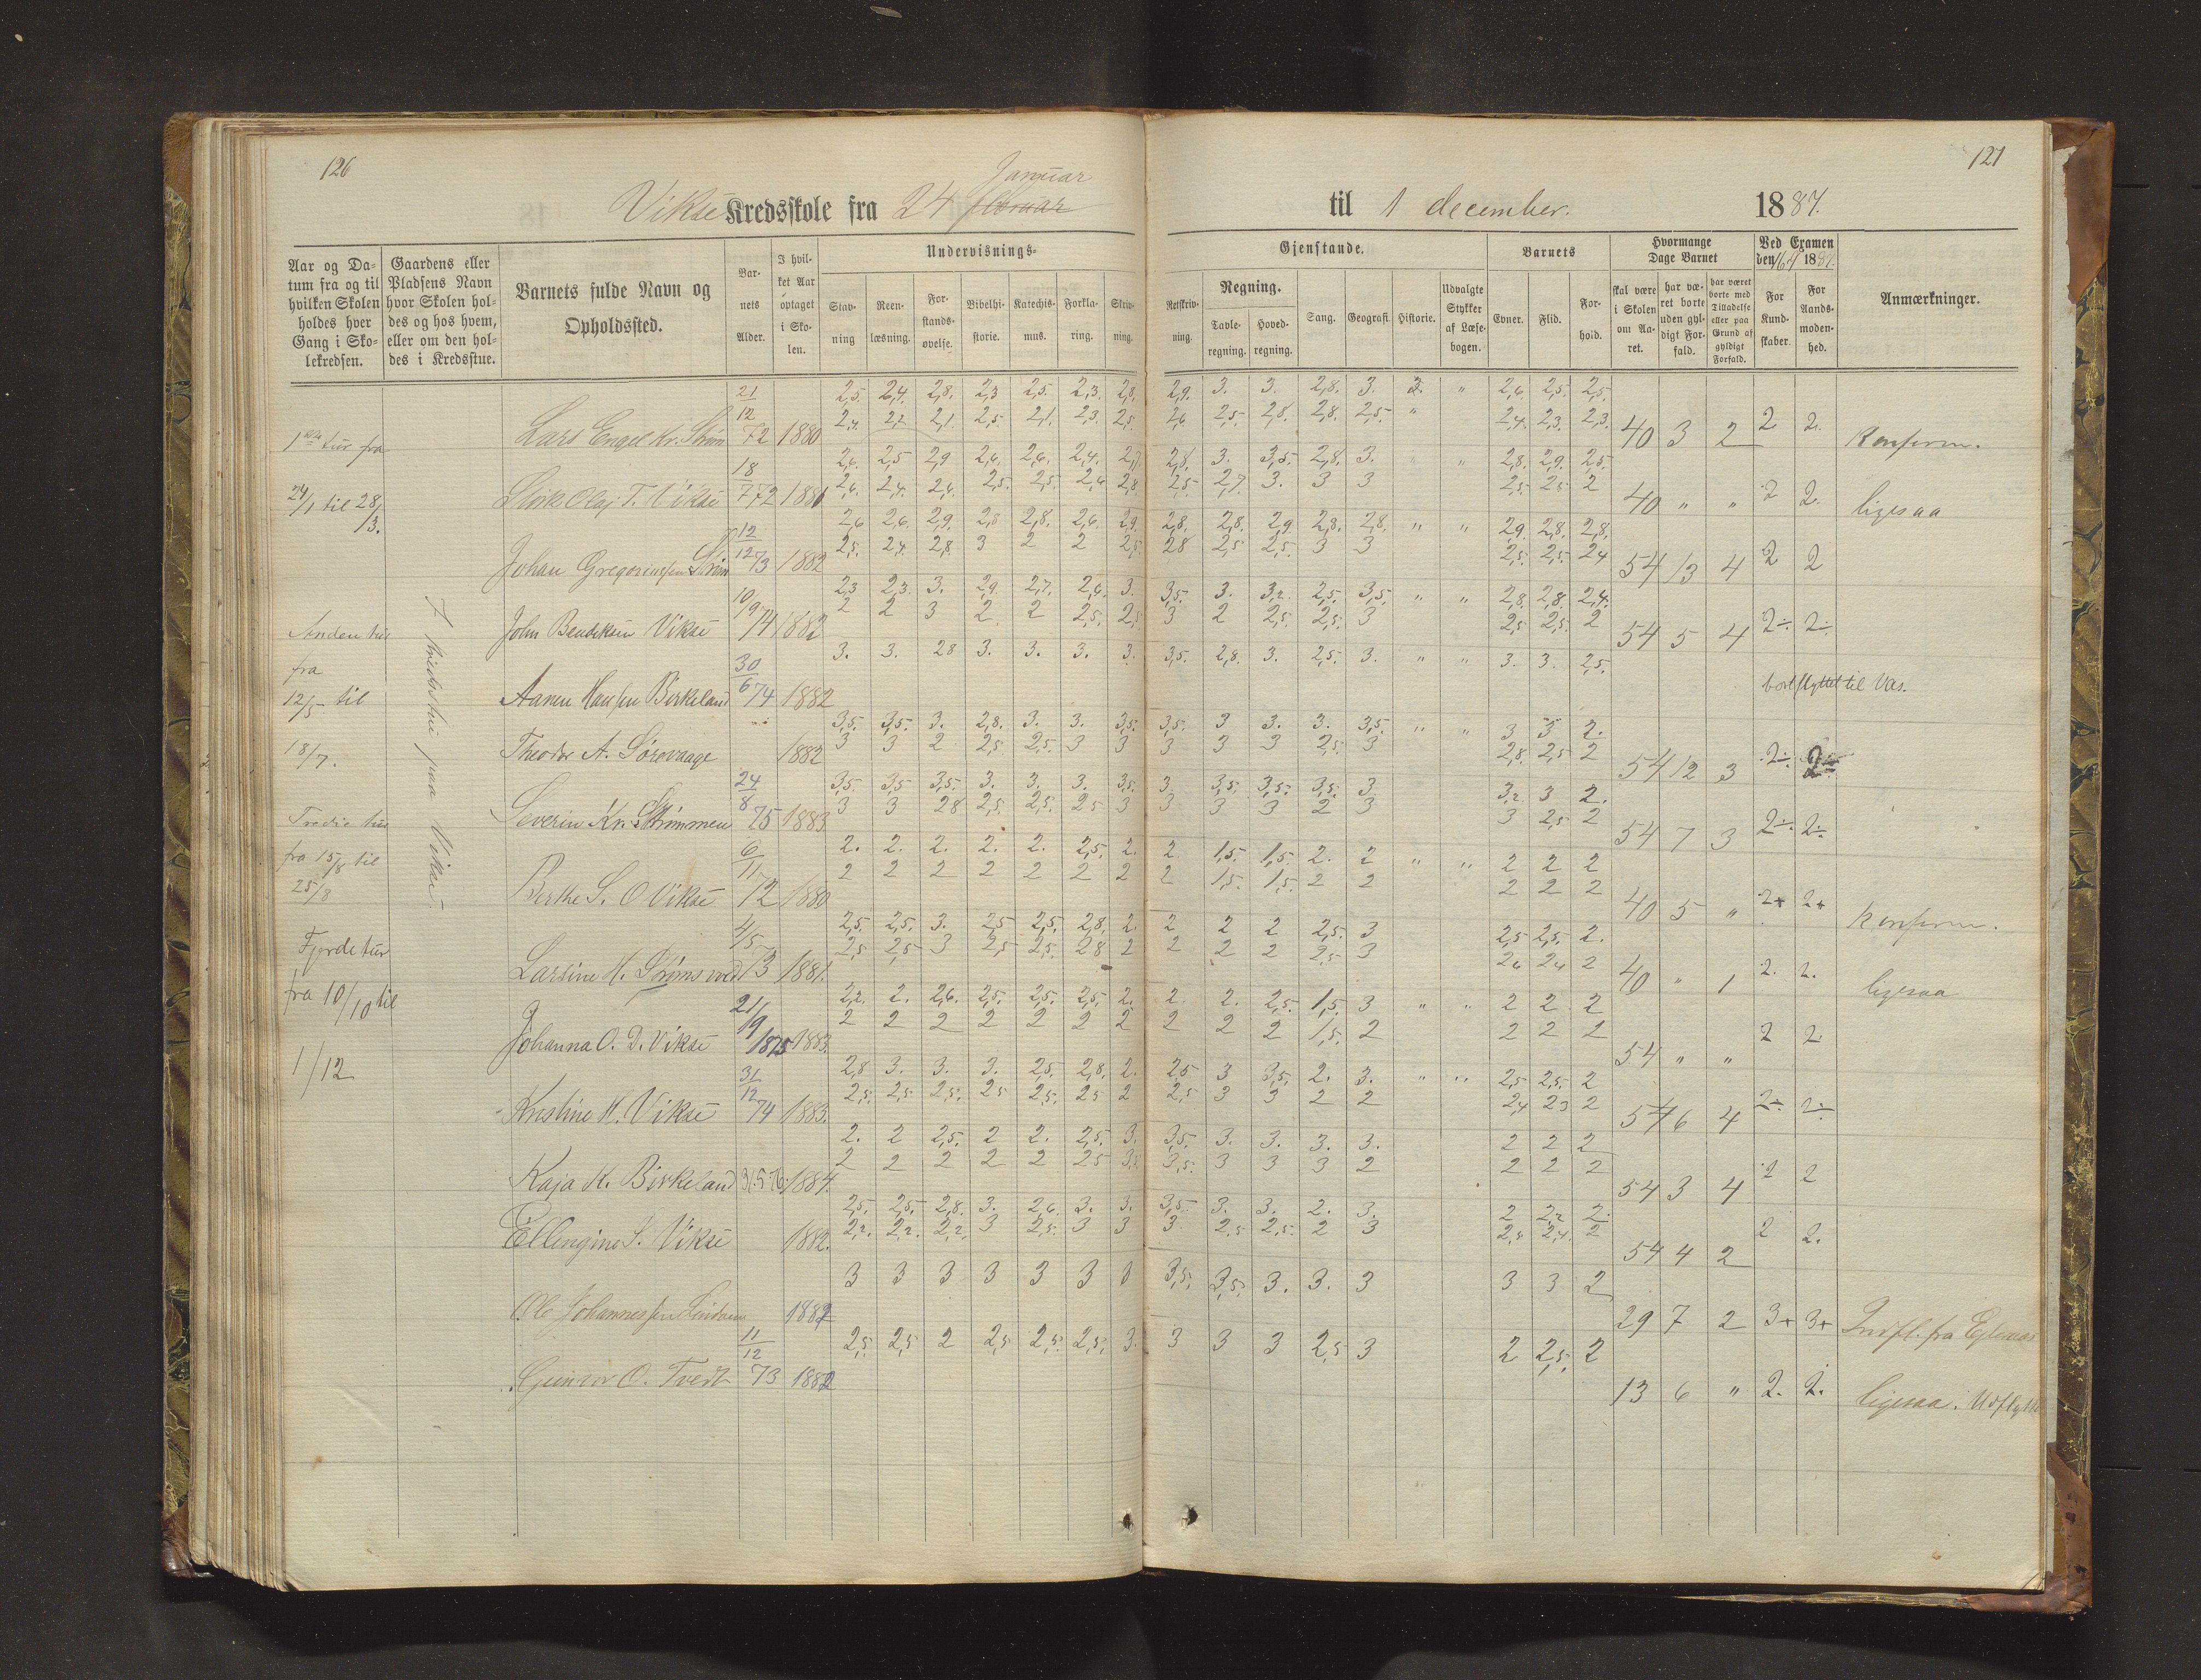 126
Januar
Vikse Kredsskole fra 24 februar
Aar og Da-
tum fra og til
hvilken Skolen
holdes hver
Gang i Sko-
lekredsen.
Gaardens eller
Pladsens Navn
hvor Skolen hol-
des og hos hvem,
eller om den hol-
des i Kredsstue.
Barnets fulde Navn og
Opholdssted.
Bar-
nets
Alder.
I hvil-
ket Aar
optaget
i Sko-
len.
Undervisnings-
Stav-
ning
Reen-
læsning.
For-
stands-
øvelse.
Bibelhi-
storie.
Katechis-
mus.
Forkla-
ring.
Skriv-
ning.
1ste tur fra
24/1 til 28/3.
Anden tur
fra
12/5 til
18/7.
Tredie tur
fra 15/8 til
25/8
Fjerde tur
fra 10/10 til
1/12
I Kredsstue paa Vikse
Lars Engel Kr. Strøm 21/12 72 1880 2,5. 2,4. 2,8. 2,3 2,5. 2,3. 2,8.
2,4. 2,2 2,1. 2,5. 2,1. 2,3. 2,5.
Olaj T. Vikse 18/7 72 1881 2,6. 2,5 2,9 2,6. 2,6. 2,4. 2,7
2,6. 2,4. 2,6. 2,5. 2,5. 2,6 2,8
Johan Gregoriussen Strøm 12/12 73 1882 2,6 2,6. 2,9. 2,8 2,8. 2,6. 2,9.
2,5. 2,4. 2,8. 3 2 2 2,5.
John Bendiksen Vikse 10/9 74 1882 2,3 2,3. 3. 2,9. 2,7. 2,6. 3.
2 2 3 2 2 2,5. 2,5.
Aanen Hansen Birkeland 30/6 74 1882 3. 3. 28 3. 3. 3. 3.
Theodor A. Sørevaage 1882 3,5. 3,5. 3. 2,8. 3. 3. 3,5.
3 3 2 2,5 2,5. 3 3
Severin Kr. Strømmen 24/8 75 1883 3,5. 3,5 3,5. 3. 3. 3. 3,5.
3 3 28 2,5. 2,5. 2,5 3
Berthe S. O Vikse 6/11 72 1880 2. 2. 2. 2. 2. 2,5. 2.
2 2 2 2 2 2 2
Larsine H. Strømsvold 4/5 73 1881. 2,5. 2,5. 3. 2,5 2,5. 2,8. 2.
2,5 2,5 3 2,5 2,5. 28 2
Johanna O. D. Vikse 21/9 1875 1883. 2,2. 2. 2,6. 2,5. 2,5. 2,5. 2.
2 2 2 2 2 2 2
Kristine M. Vikse 31/12 74 1883. 2,8 3. 3. 3. 2,5. 2,8. 2.
2,5. 2,5 2,5. 25 2,5. 25 2
Kaja K. Birkeland 31.5.76. 1884. 2. 2 2,5. 2 2. 2,5. 3.
2 2 2 2 2 25 3,5
Ellengine S. Vikse 1882. 2,5. 2,5. 2,8. 3. 2,6. 3. 3.
2,2. 2,2. 2,2. 3 2,5. 3 3
Ole Johannessen 1882 3 3 3 3 3 3 3
Gunvor O. Tvedt 11/12 73 1882 2,5. 2,5 2 2,5 2,5. 2,5. 3.
127
til 1 december. 1887.
Gjenstande.
Retskriv-
ning.
Regning.
Tavle-
regning.
Hoved-
regning.
Sang.
Geografi.
Historie.
Udvalgte
Stykker
af Læse-
bogen.
Barnets
Evner.
Flid.
For-
hold.
Hvormange
Dage Barnet
skal være
i Skolen
om Aa-
ret.
har væ-
ret borte
uden gyl-
digt For-
fald.
har været
borte med
Tilladelse
eller paa
Grund af
gyldigt
Forfald.
Ved Examen
den 16/4 1887.
For
Kund-
skaber.
For
Aands-
moden-
hed.
Anmærkninger.
2,9. 3. 3. 2,8. 3. 3. " 2,6. 2,5. 2,5.
2,6. 2,5. 2,8. 2,8. 2,5. " 2,4. 2,3. 2,3. 40 3 2 2 2. Konferm.
2,8. 3. 3,5. 2,8. 3. " " 2,8. 2,9. 2,5.
2,5 2,7. 3. 3 3 2,5 2,5 2 40 " " 2 2. ligesaa
2,8. 2,8. 2,9 2,8. 2,8. " " 2,9. 2,8. 2,8.
28 2,5 2,5. 3 3 2,5. 2,5. 24 54 13 4 2 2
3,5. 3. 3,2. 2,5. 3,5. " " 2,8. 2,8. 2,4.
3 2 2,5. 2,5. 3 2,5 2,5. 2 54 5 4 2÷ 2÷
3,5. 2,8. 3. 2,5. 3. " " 3. 3. 2,5. bortflyttet til Vas.
3,5. 3 3. 3. 3,5. " " 3 3 2.
3 3 3 2,5. 3 2,8. 2,5 2 54 12 3 2÷ 2÷
3. 3,5. 3,5. 3,5. 3. 3,2. 3 2.
3 3 3 2 3 3 2,5 2 54 7 3 2÷ 2÷
2. 1,5. 1,5. 2. 2 " " 2 2 2
2 1,5. 1,5. 2 2 2 2 2 40 5 " 2+ 2+ Konferm.
2 2 2 2,5. 3 2,5 2,5. 2.
2 2 2 2,5 3 26 24 2 40 " 1 2. 2. ligesaa
2. 2. 2,5. 1,5. 3 " " 2 2 2
2 2 2 1,5. 2 2 2 2 54 " " 2 2
2,5 3 3,5. 2. 3. " " 2,5 2,5. 2
2,5 3 3 2 2 2,4 23 2 54 6 4 2÷ 2÷
3,5. 3. 3. 3. 3. 2 2 2
3,5. 3 3 3 2 2 2 2 54 3 4 2 2
3,5 3. 3. 2. 3. 2 2,2 2.
3 2,5 2,5. 2 3 2,4 2,4. 2 54 4 2 2 2.
3,5. 3,5. 3. 3. 3 3 3 2 29 7 2 3+ 3+ Indfl. fra
3 3 3 2,5 3 2 2,5. 2 13 6 " 2. 2. ligesaa. Udflytt